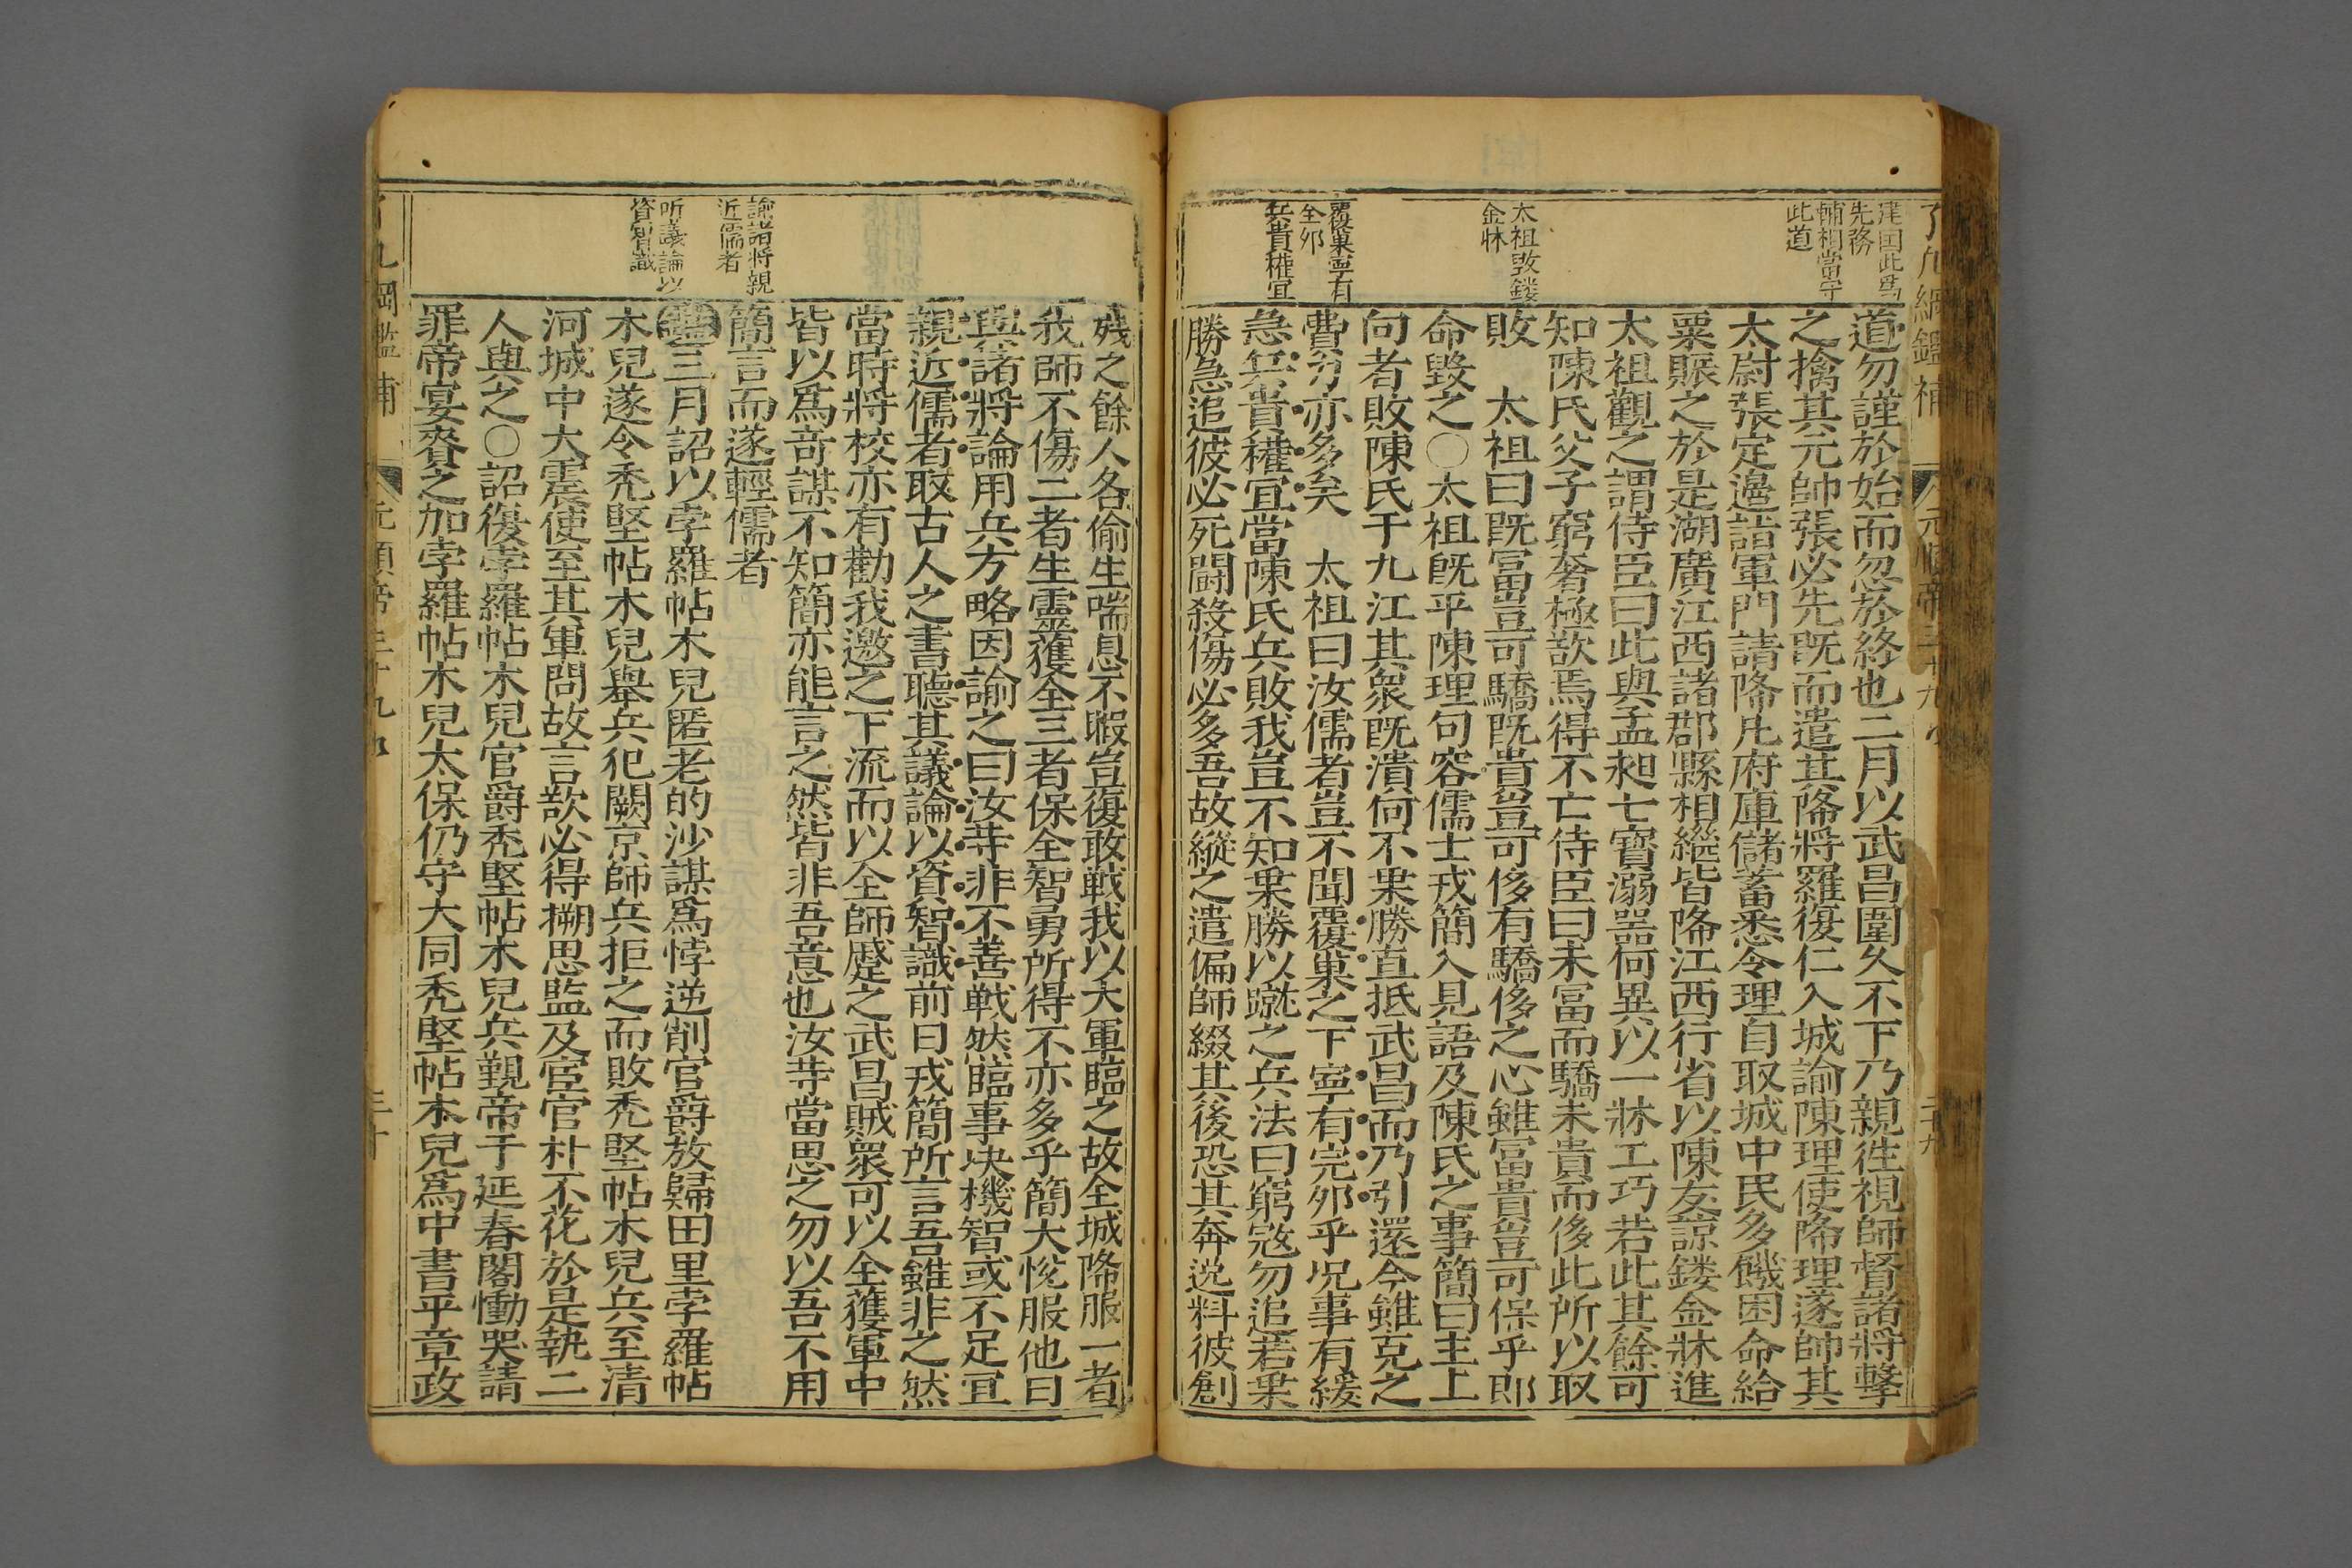 了凡綱鑑補
元順帝三十九卷
二十九
建国此爲
先務
輔相當守
此道
道勿謹於始而忽於終也二月以武昌圍久不下乃親徃視師督諸將擊
之擒其元帥張必先既而遣其降將羅復仁入城諭陳理使降理遂帥其
太尉張定邊詣軍門請降凡府庫儲蓄悉令理自取城中民多饑困命給
粟賑之於是湖廣江西諸郡縣相繼皆降江西行省以陳友諒鏤金牀進
太祖觀之謂侍臣曰此與孟昶七寶溺器何異以一牀工巧若此其餘可
知陳氏父子窮奢極欲焉得不亡侍臣曰未冨而驕未貴而侈此所以取
太祖毀鏤
金牀
敗　太祖曰既冨豈可驕既貴豈可侈有驕侈之心雖冨貴豈可保乎即
命毀之○太祖既平陳理句容儒士戎簡入見語及陳氏之事簡曰主上
向者敗陳氏于九江其衆既潰何不乗勝直抵武昌而乃引還今雖克之
覆巢寧有
全夘
費力亦多矣　太祖曰汝儒者豈不聞覆巢之下寧有完夘乎况事有緩
兵貴權宜
急兵貴權宜當陳氏兵敗我豈不知乗勝以蹴之兵法曰窮寇勿追若乗
勝急追彼必死鬪殺傷必多吾故縱之遣偏師綴其後恐其奔逸料彼創
殘之餘人各偷生喘息不暇豈復敢戰我以大軍臨之故全城降服一者
我師不傷二者生靈獲全三者保全智勇所得不亦多乎簡大悅服他日
與諸將論用兵方略因諭之曰汝等非不善戰然臨事决機智或不足宜
諭諸將親
近儒者
親近儒者取古人之書聽其議論以資智識前日戎簡所言吾雖非之然
當時將校亦有勸我邀之下流而以全師蹙之武昌賊衆可以全獲軍中
皆以爲竒謀不知簡亦能言之然皆非吾意也汝等當思之勿以吾不用
簡言而遂輕儒者
听議論以
資智識
三月詔以孛羅帖木兒匿老的沙謀爲悖逆削官爵放歸田里孛羅帖
木兒遂令禿堅帖木兒舉兵犯闕京師兵拒之而敗禿堅帖木兒兵至清
河城中大震使至其軍問故言欲必得搠思監及宦官朴不花於是執二
人與之○詔復孛羅帖木兒官爵禿堅帖木兒兵覲帝于延春閣慟哭請
罪帝宴賚之加孛羅帖木兒太保仍守大同禿堅帖木兒爲中書平章政
了凡綱鑑補
元順帝三十九卷
三十